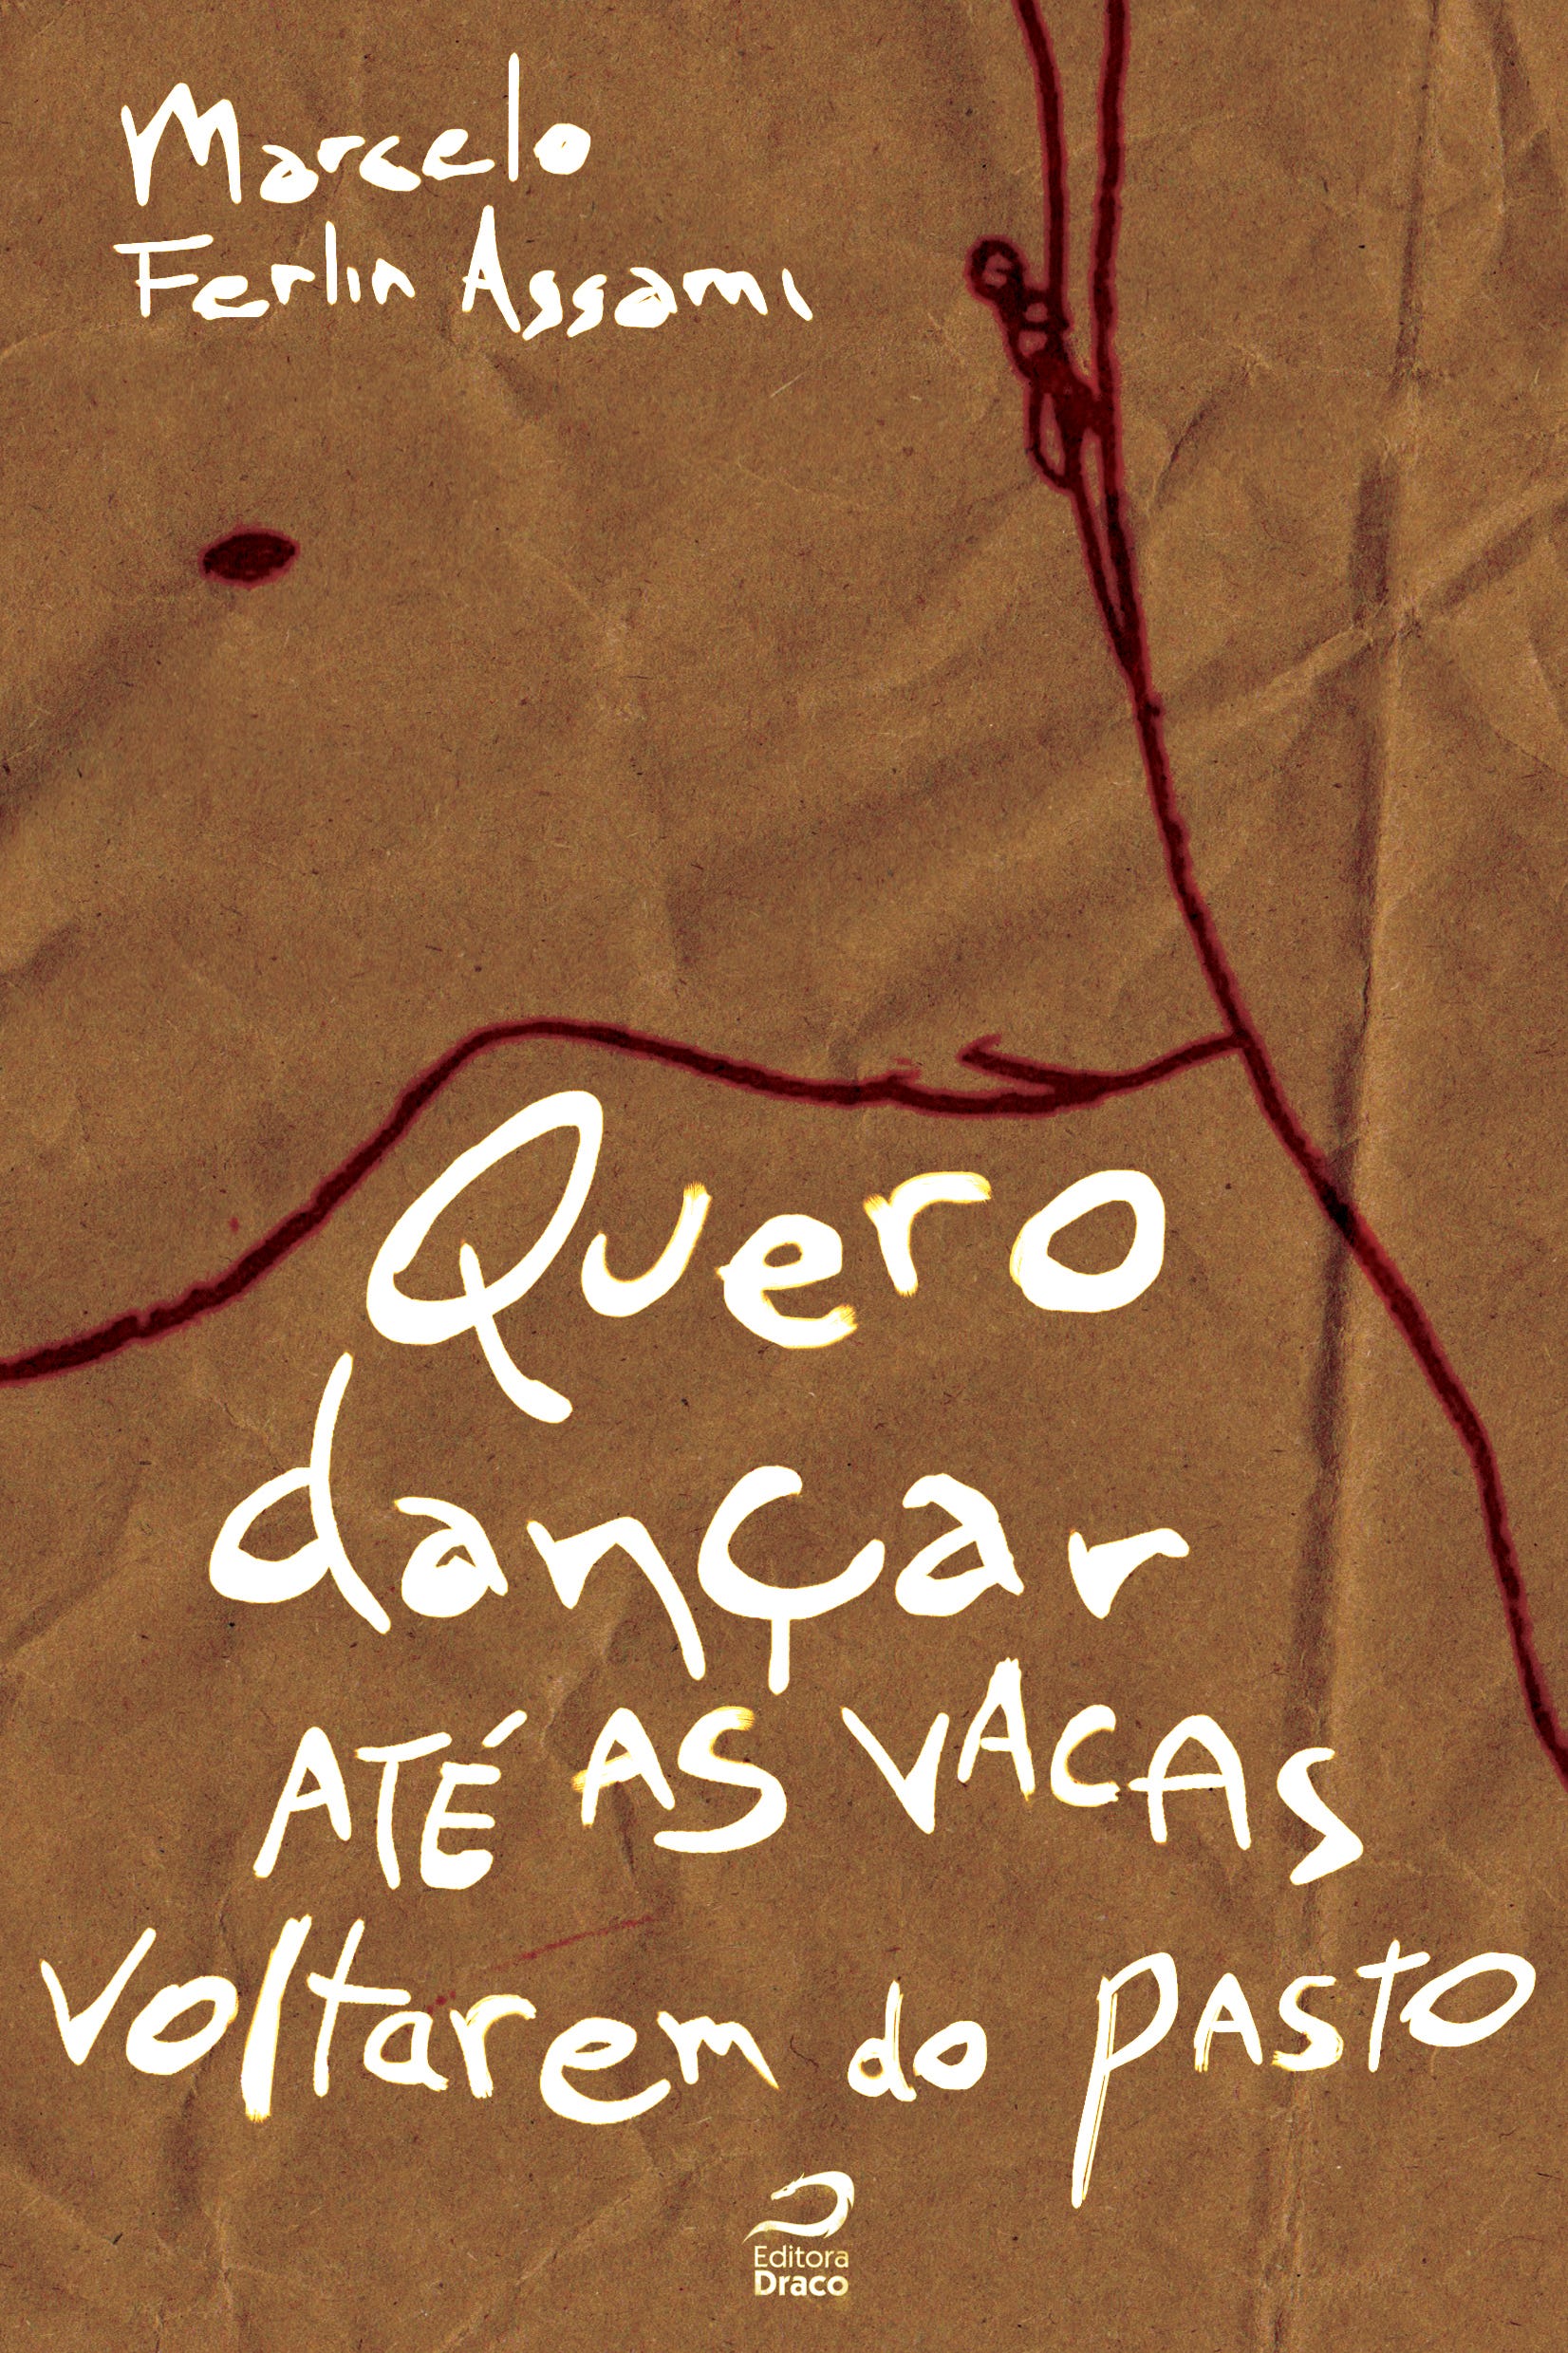 Marcelo
Ferlin Assami
Quero
dançar
ATÉ AS VACAS
voltarem do PASTO
Editora
Draco